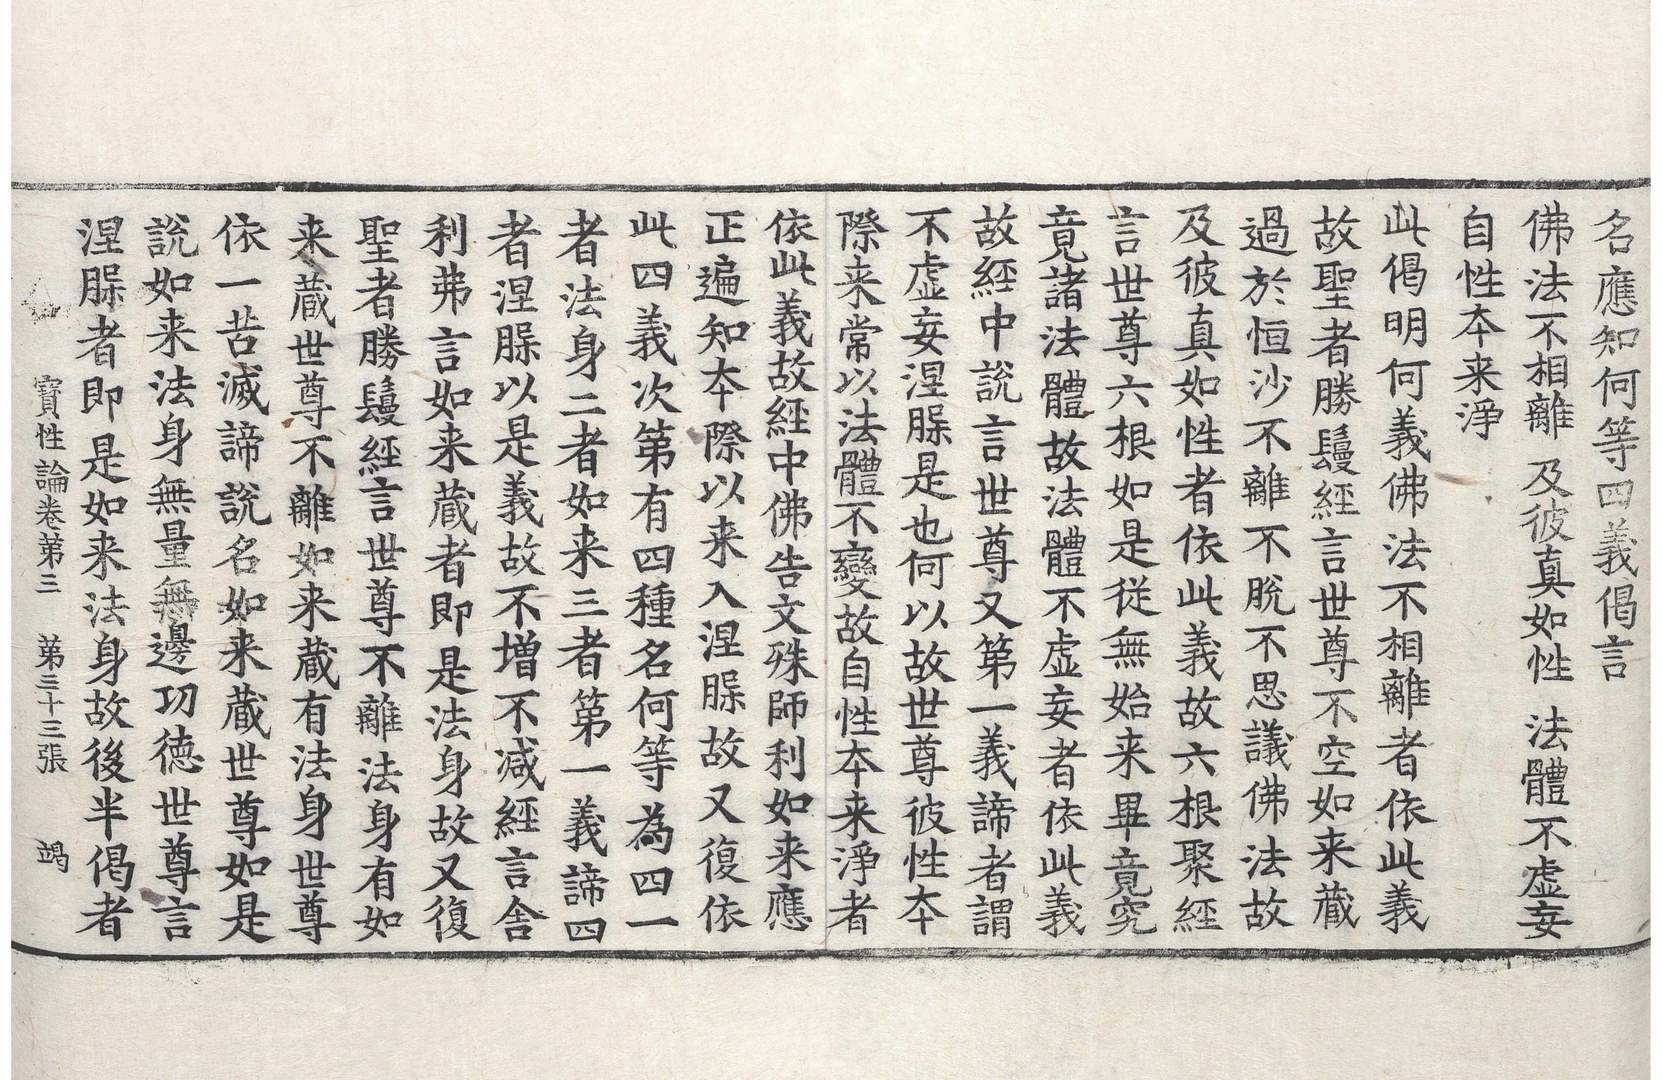 名應知何等四義偈言
佛法不相離 及彼真如性 法體不虛妄
自性本来淨
此偈明何義佛法不相離者依此義
故聖者勝鬘經言世尊不空如来蔵
過於恒沙不離不脫不思議佛法故
及彼真如性者依此義故六根聚經
言世尊六根如是從無始来畢竟究
竟諸法體故法體不虛妄者依此義
故經中說言世尊又第一義諦者謂
不虛妄涅槃是也何以故世尊彼性本
際来常以法體不變故自性本来淨者
依此義故經中佛告文殊師利如来應
正遍知本際以来入涅槃故又復依
此四義次第有四種名何等為四一
者法身二者如来三者第一義諦四
者涅槃以是義故不增不减經言舍
利弗言如来蔵者即是法身故又復
聖者勝鬘經言世尊不離法身有如
来蔵世尊不離如来蔵有法身世尊
依一苦滅諦說名如来蔵世尊如是
說如来法身無量無邊功德世尊言
涅槃者即是如来法身故後半偈者
寶性論卷第三 第三十三張 竭